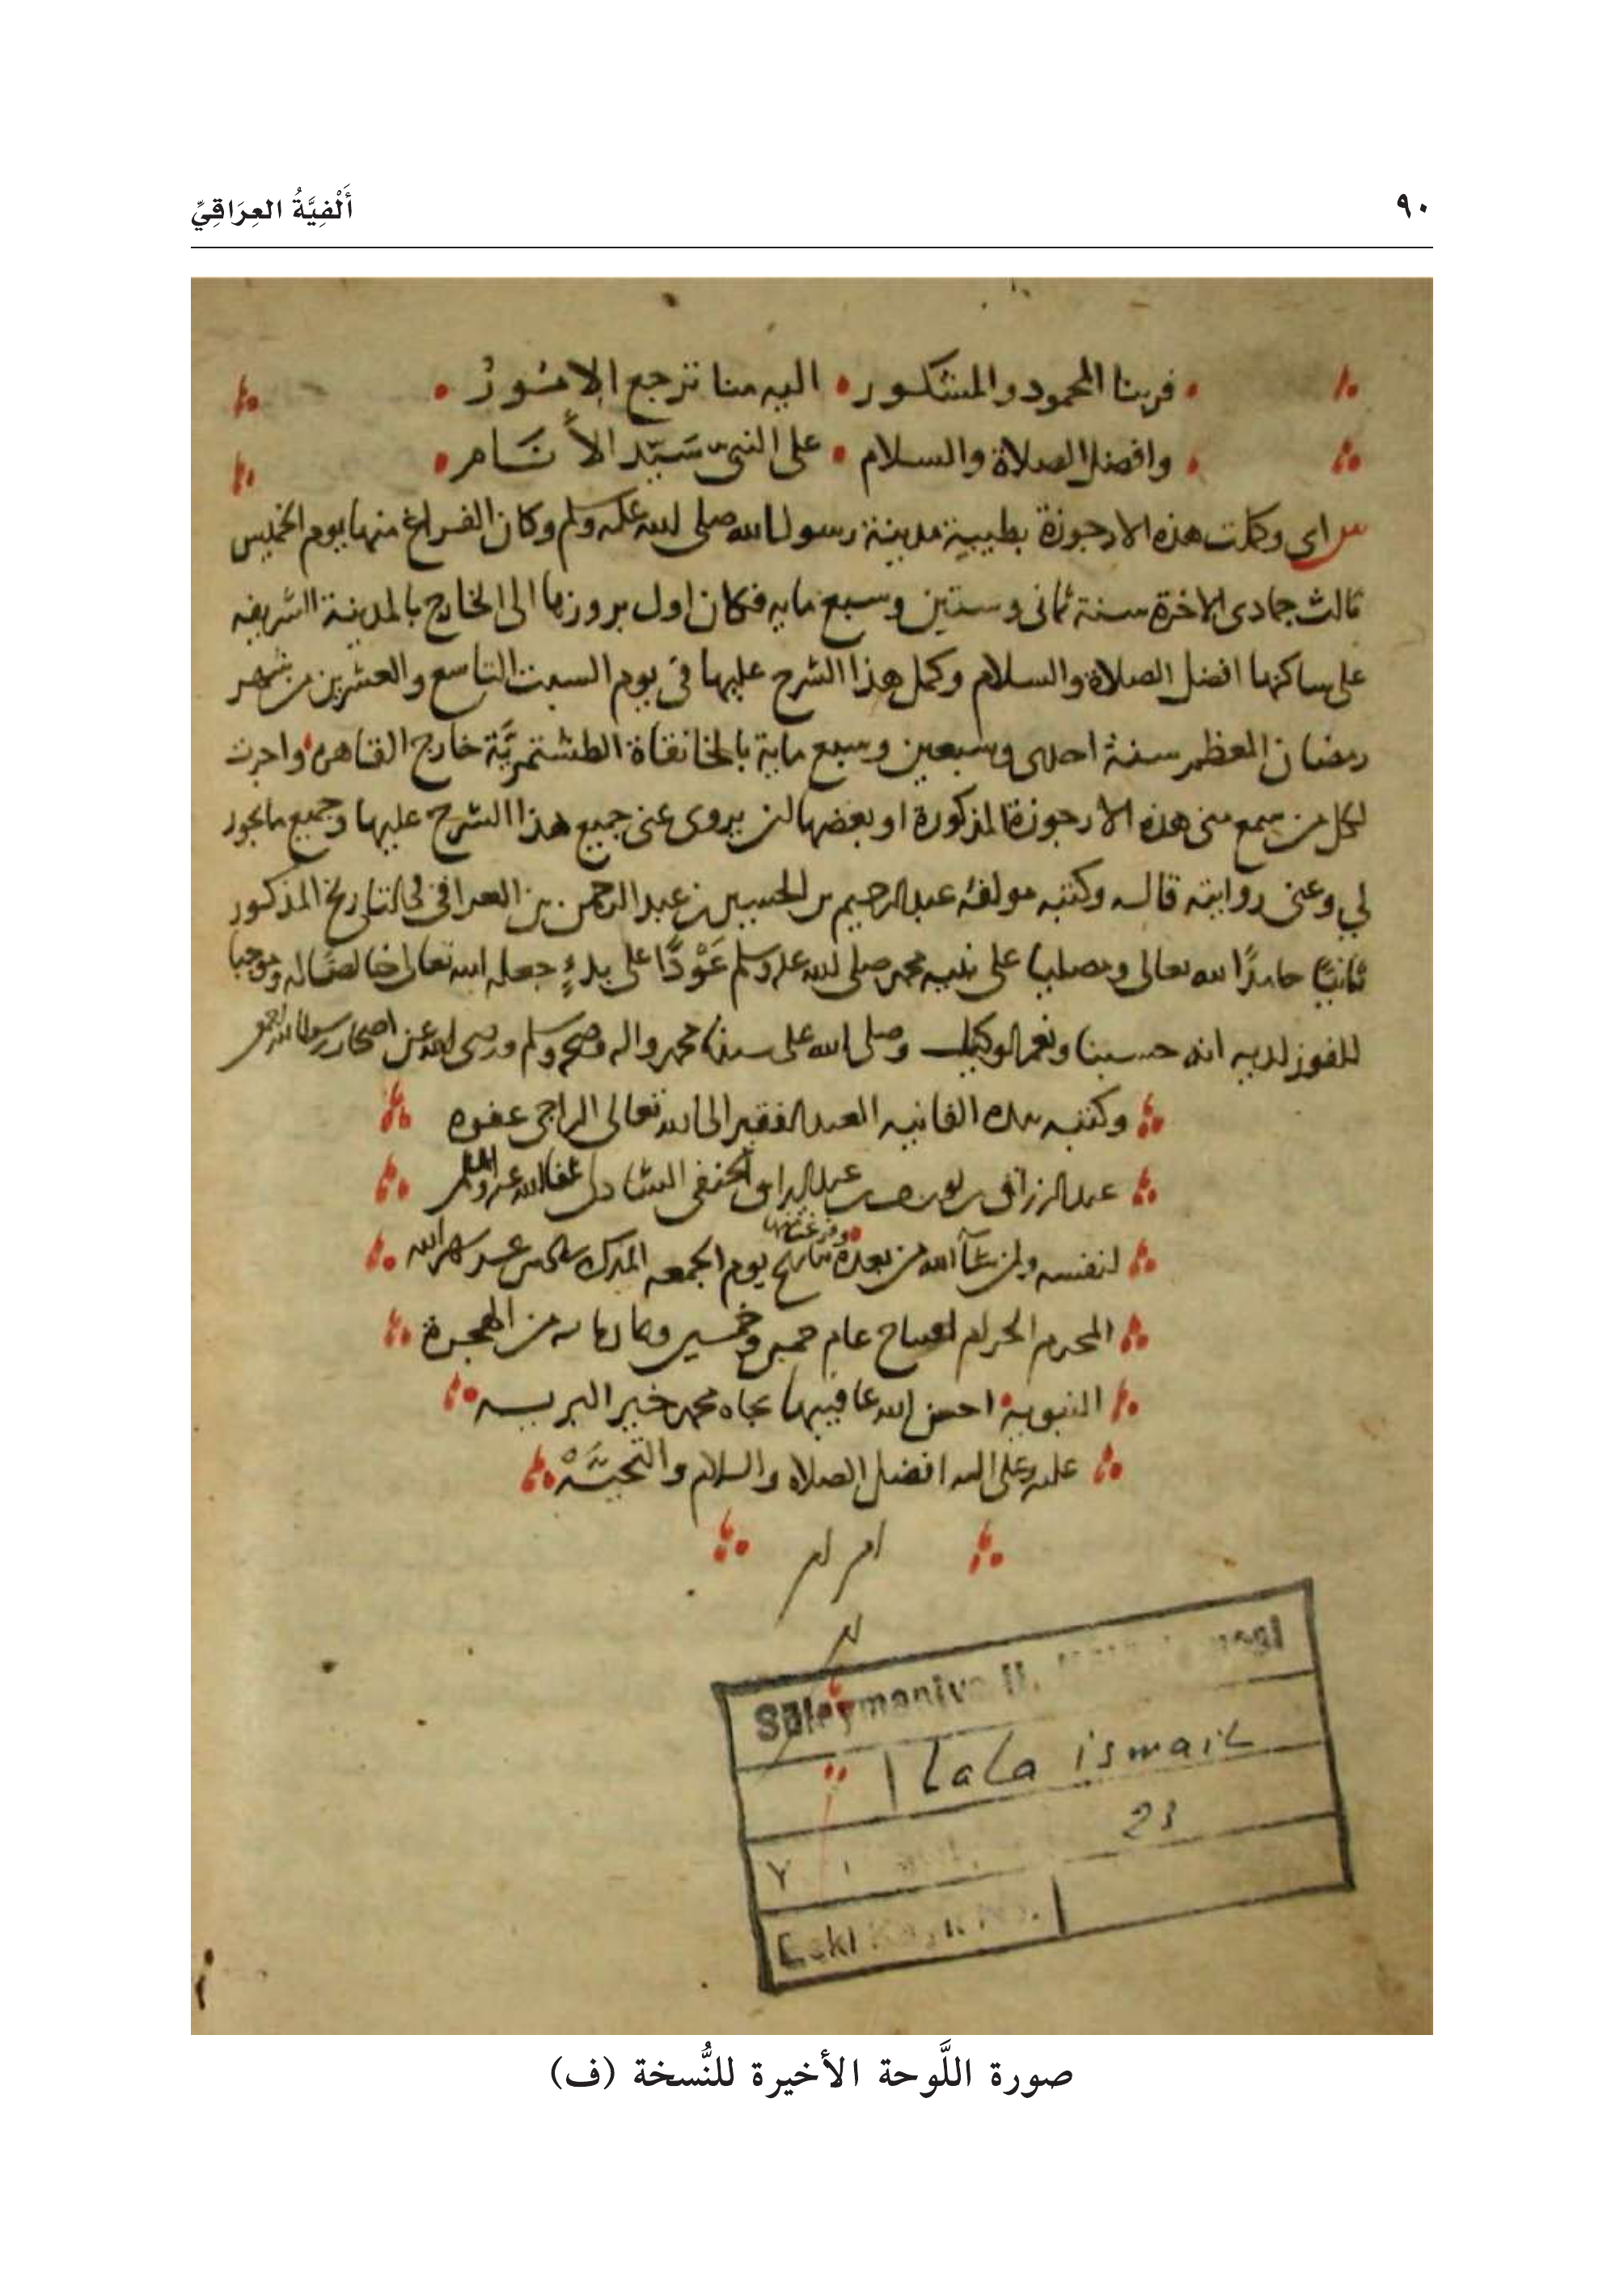 ٩٠
أَلْفِيَّةُ العِرَاقِيِّ
فربنا المحمود والمشكور اليه منا ترجع الامور
وافضل الصلاة والسلام على النبي سَيّد الأنَام
ش اى وكملت هذه الارجوزة بطيبة مدينة رسول الله صلى الله عليه وسلم وكان الفراغ منها يوم الخميس
ثالث جمادى الاخرة سنة ثمانى وستين وسبع مايه فكان اول بروزها الى الخارج بالمدينة الشريفه
على ساكنها افضل الصلاة والسلام وكمل هذا الشرح عليها فى يوم السبت التاسع والعشرين من شهر
رمضان المعظم سنة احدى وسبعين وسبع ماية بالخانقاة الطشتمريَّة خارج القاهره واجزت
لكل من سمع منى هذه الارجوزة المذكورة او بعضها ان يروى عنى جميع هذا الشرح عليها وجميع ما يجوز
لي وعنى روايته قاله وكتبه مولفه عبد الرحيم بن الحسين بن عبد الرحمن بن العراقى فى التاريخ المذكور
ثانيًا حامدًا لله تعالى ومصليا على نبيه محمد صلى الله عليه وسلم عَوْدًا على بدءٍ جعله الله تعالى خالصًا له وموجبا
للفوز لديه انه حسبنا ونعم الوكيل وصلى الله على سيدنا محمد واله وصحبه وسلم ورضى الله عن اصحاب رسول الله
وكتبه بيده الفانيه العبد الفقير الى الله تعالى الراجى عفوه
عبد الرزاق بن يوسف بن عبد الرزاق الحنفى الشاذلى عفا الله عنه
لنفسه ولمن شآ الله من بعده وفرغت منها يوم الجمعه المبارك عشر شهر الله
المحرم الحرام افتتاح عام خمس وخمسين وثمان مايه من الهجرة
النبوية احسن الله عاقبيها بجاه محمد خير البريه
عليه وعلى اله افضل الصلاه والسلام والتحيَّهْ
Süleymaniye U. Kütüphanesi
Lala ismail
23
Eski Kayıt No.
صورة اللَّوحة الأخيرة للنُّسخة (ف)